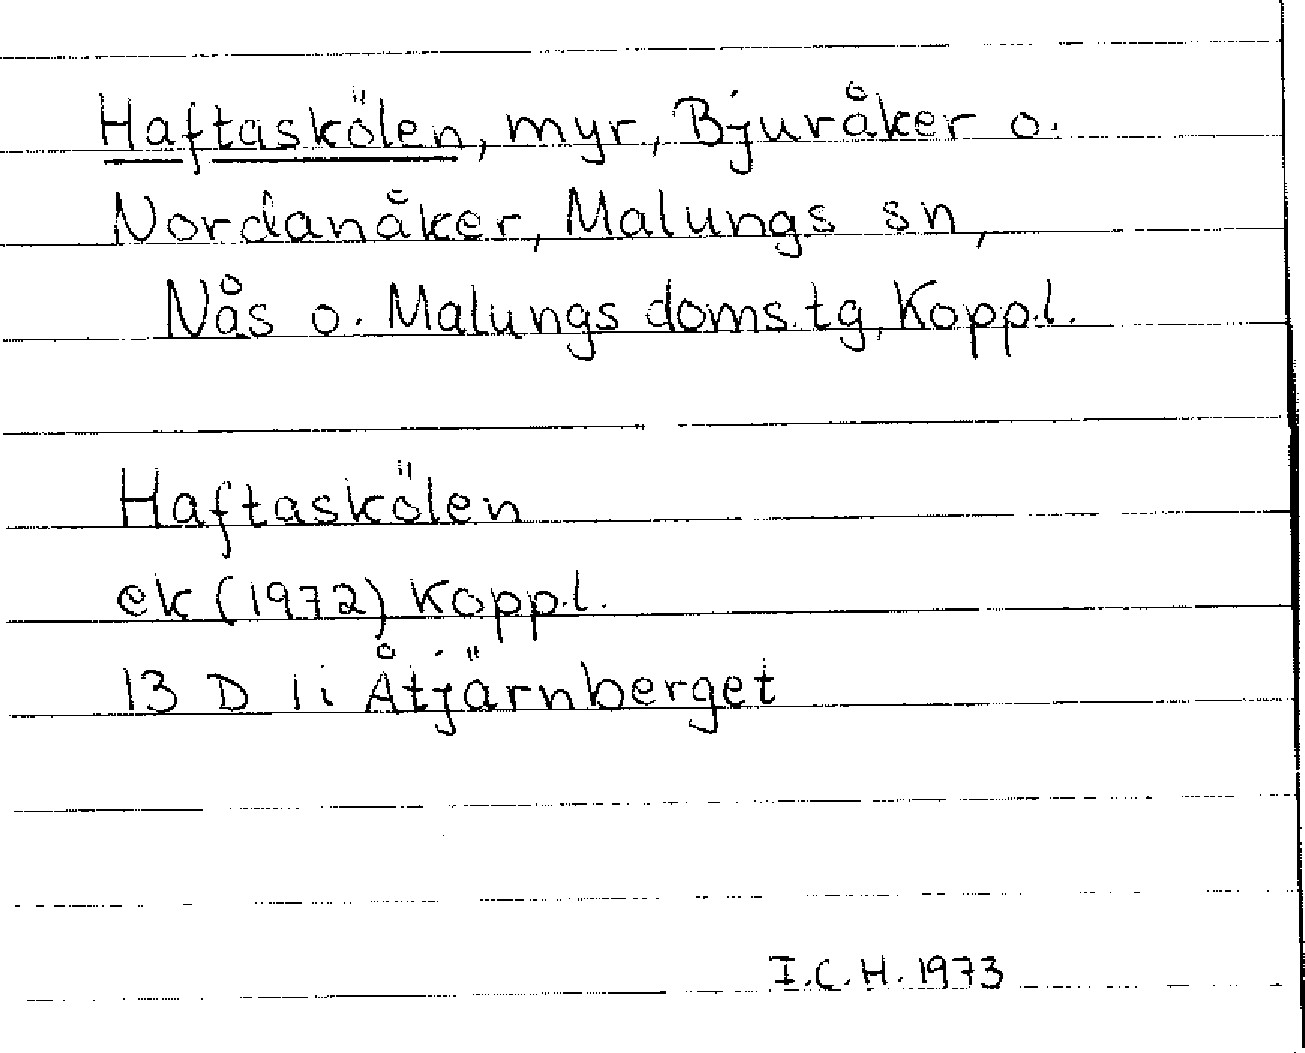 Haftaskölen, myr, Bjuråker o.
Nordanåker, Malungs sn,
Nås o. Malungs doms.tg, Koppl.
Haftaskölen
ek (1972) Koppl.
13 D 1i Åtjärnberget
I.C.H. 1973